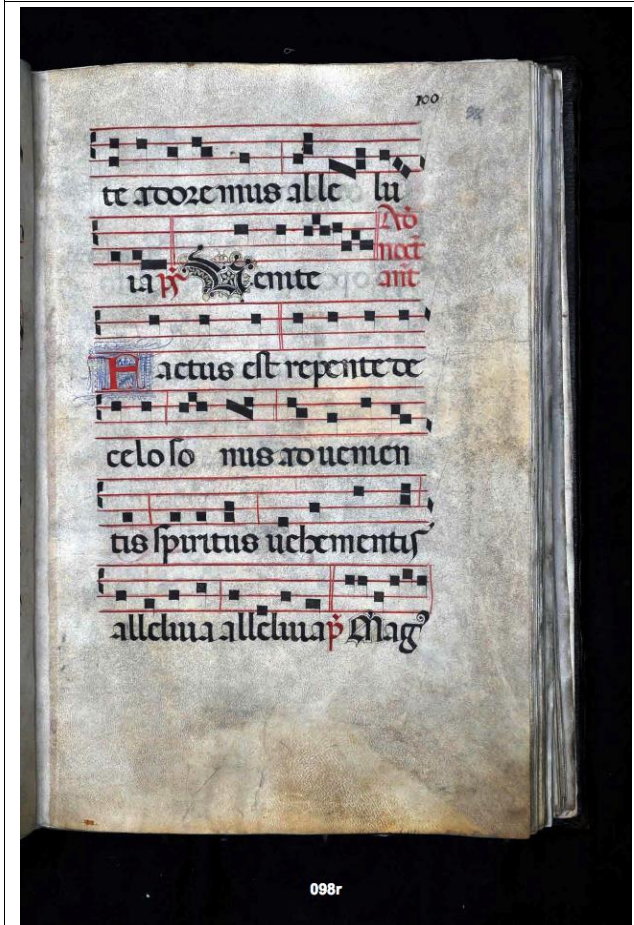 100
98
te adoremus alle lu
ia ps Venite
Ad
noct
ant
Factus est repente de
celo so nus aduenien
tis spiritus uehementis
alleluia alleluia p Mag
098r